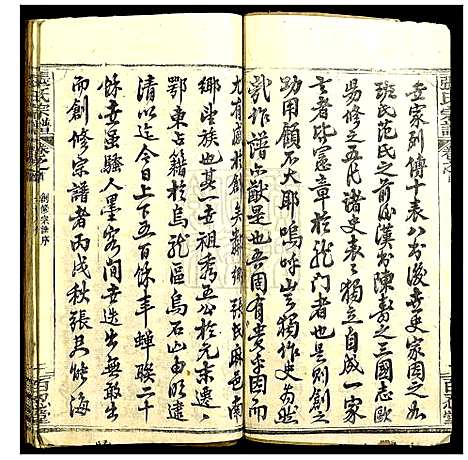 張氏宗譜
世家列傳十表八書後世史家因之為
班氏范氏之前後漢書陳壽之三國志歐
易修之五代諸史表之獨立自成一家
言者皆憲章於龍門者也是則創之
功用顧不大耶嗚呼豈獨作史為然
哉作譜亦猷是也吾因有廣乎因而
尤有廣於創矣黎衛張氏麻邑南
鄉望族也其一世祖秀五公於元末遷
鄂東占籍於烏龍區烏石山由明
清以迄今日上下五百餘年蟬聯二十
餘世雖騷人墨客間世迭出無敢出
而創修宗譜者丙戌秋張君紗海
張氏宗譜
創修宗譜序
百忍堂
百忍堂